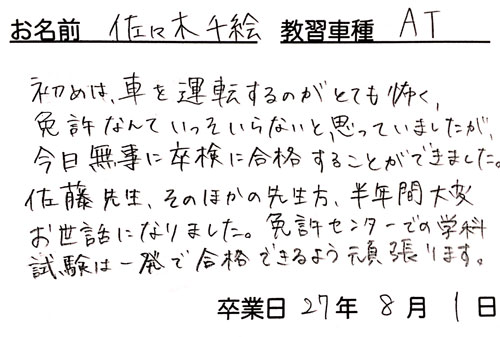 お名前 佐々木千絵 教習車種 AT
初めは、車を運転するのがとても怖く、
免許なんていっそいらないと、思っていましたが、
今日無事に卒検に合格することができました。
佐藤先生、そのほかの先生方、半年間大変
お世話になりました。免許センターでの学科
試験は一発で合格できるよう頑張ります。
卒業日 27年 8月 1日